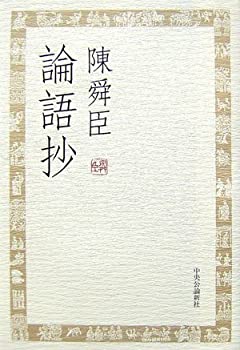 陳舜臣
論語抄
中央公論新社